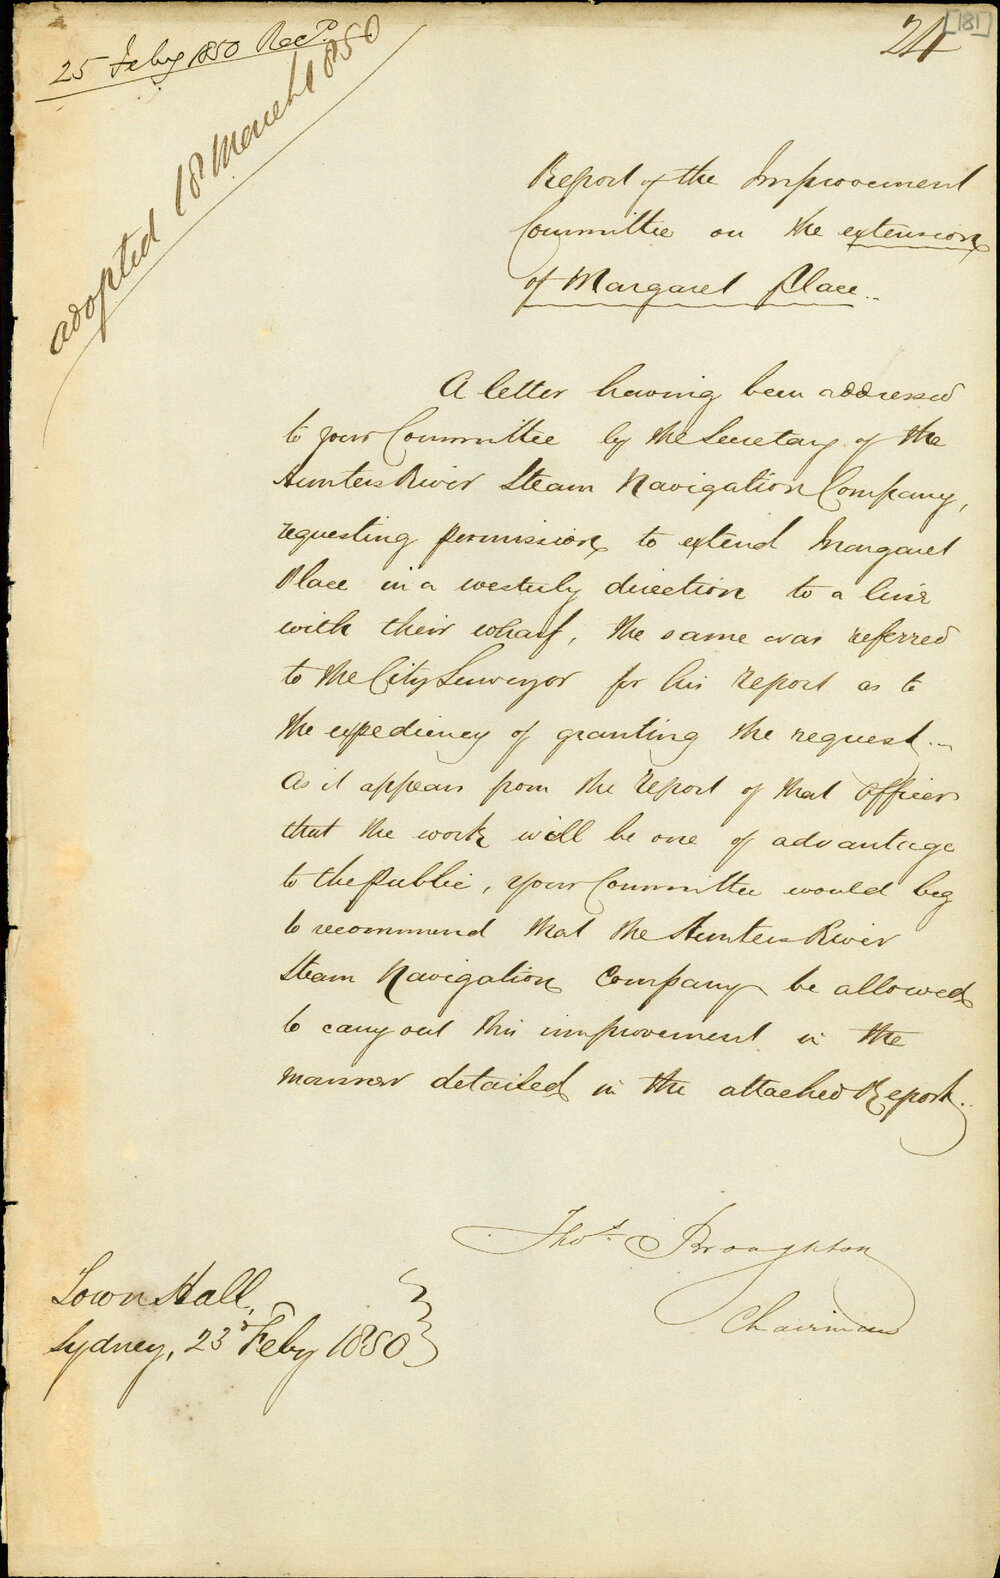 25 Feby 1850 Recd
adopted 18 March 1850
24
[181]
Report of the Improvement
Committee on the extension
of Margaret Place..
A letter having been addressed
to your Committee by the Secretary of the
Hunters River Steam Navigation Company,
requesting permission to extend Margaret
Place in a westerly direction to a line
with their wharf, the same was referred
to the City Surveyor for his report as to
the expediency of granting the request..
As it appears from the report of that Officer
that the work will be one of advantage
to the Public, your Committee would beg
to recommend that the Hunters River
Steam Navigation Company be allowed
to carry out this improvement in the
manner detailed in the attached Report..
Thos. Broughton
Chairman
Town Hall,
Sydney, 23d Feby 1850